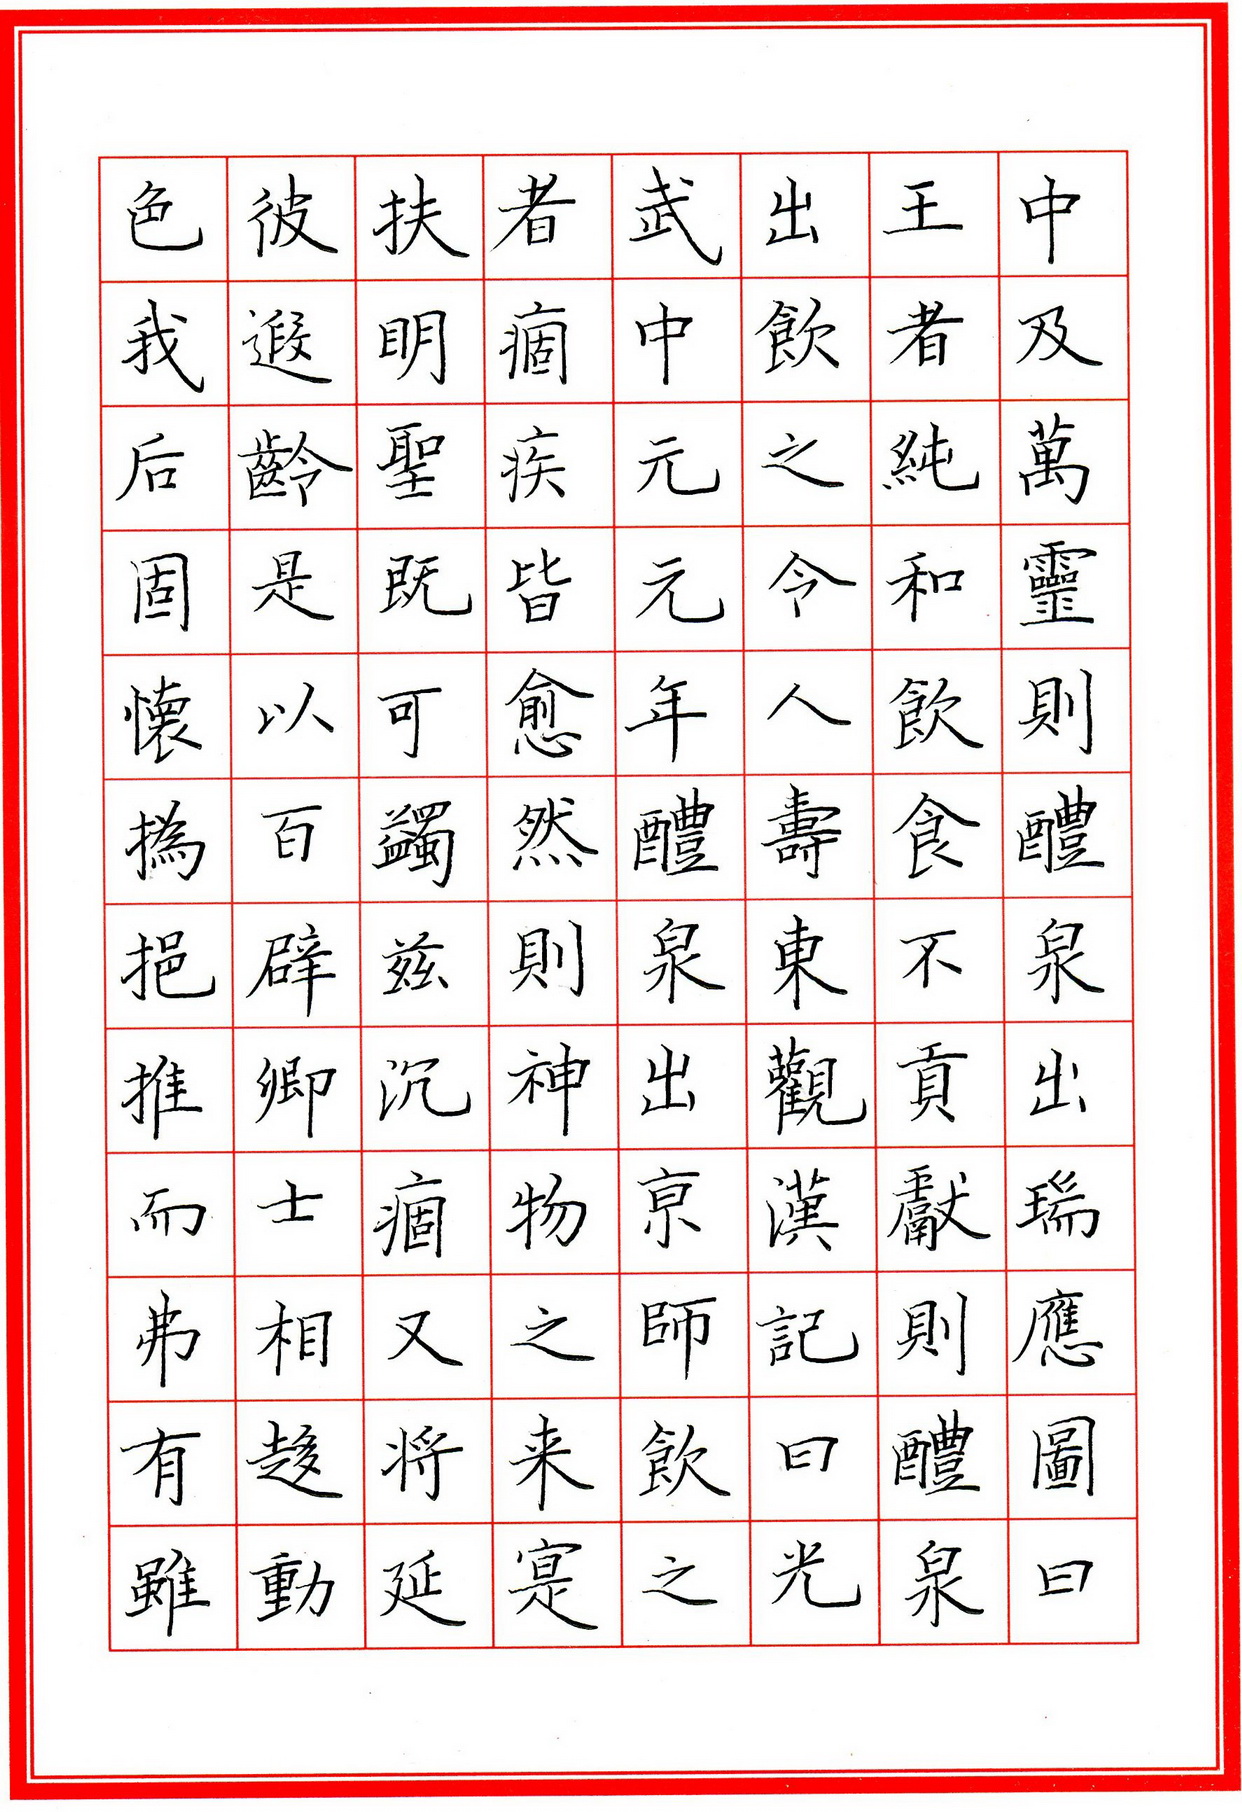 中及萬靈則醴泉出瑞應圖曰
王者純和飲食不貢獻則醴泉
出飲之令人壽東觀漢記曰光
武中元元年醴泉出京師飲之
者痼疾皆愈然則神物之来寔
扶明聖既可蠲兹沉痼又将延
彼遐齡是以百辟卿士相趍動
色我后固懷撝挹推而弗有雖